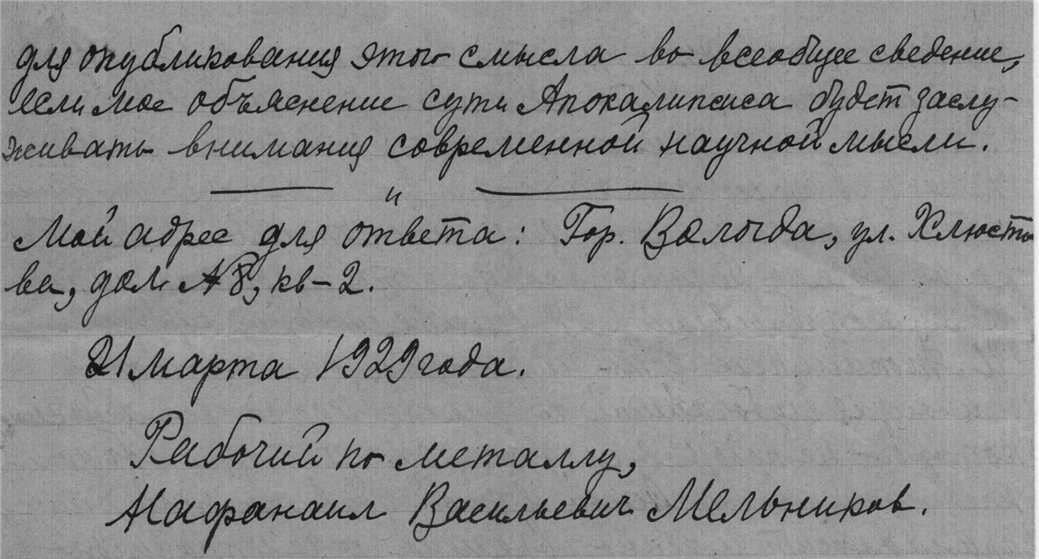 для опубликования этого смысла во всеобщее сведение,
если мое объяснение сути Апокалипсиса будет заслу-
живать внимания современной научной мысли.
"
Мой адрес для ответа: Гор. Вологда, ул. Хлюсто
ва, дом № 8, кв-2.
21 марта 1929 года.
Рабочий по металлу,
Нафанаил Васильевич Мельников.